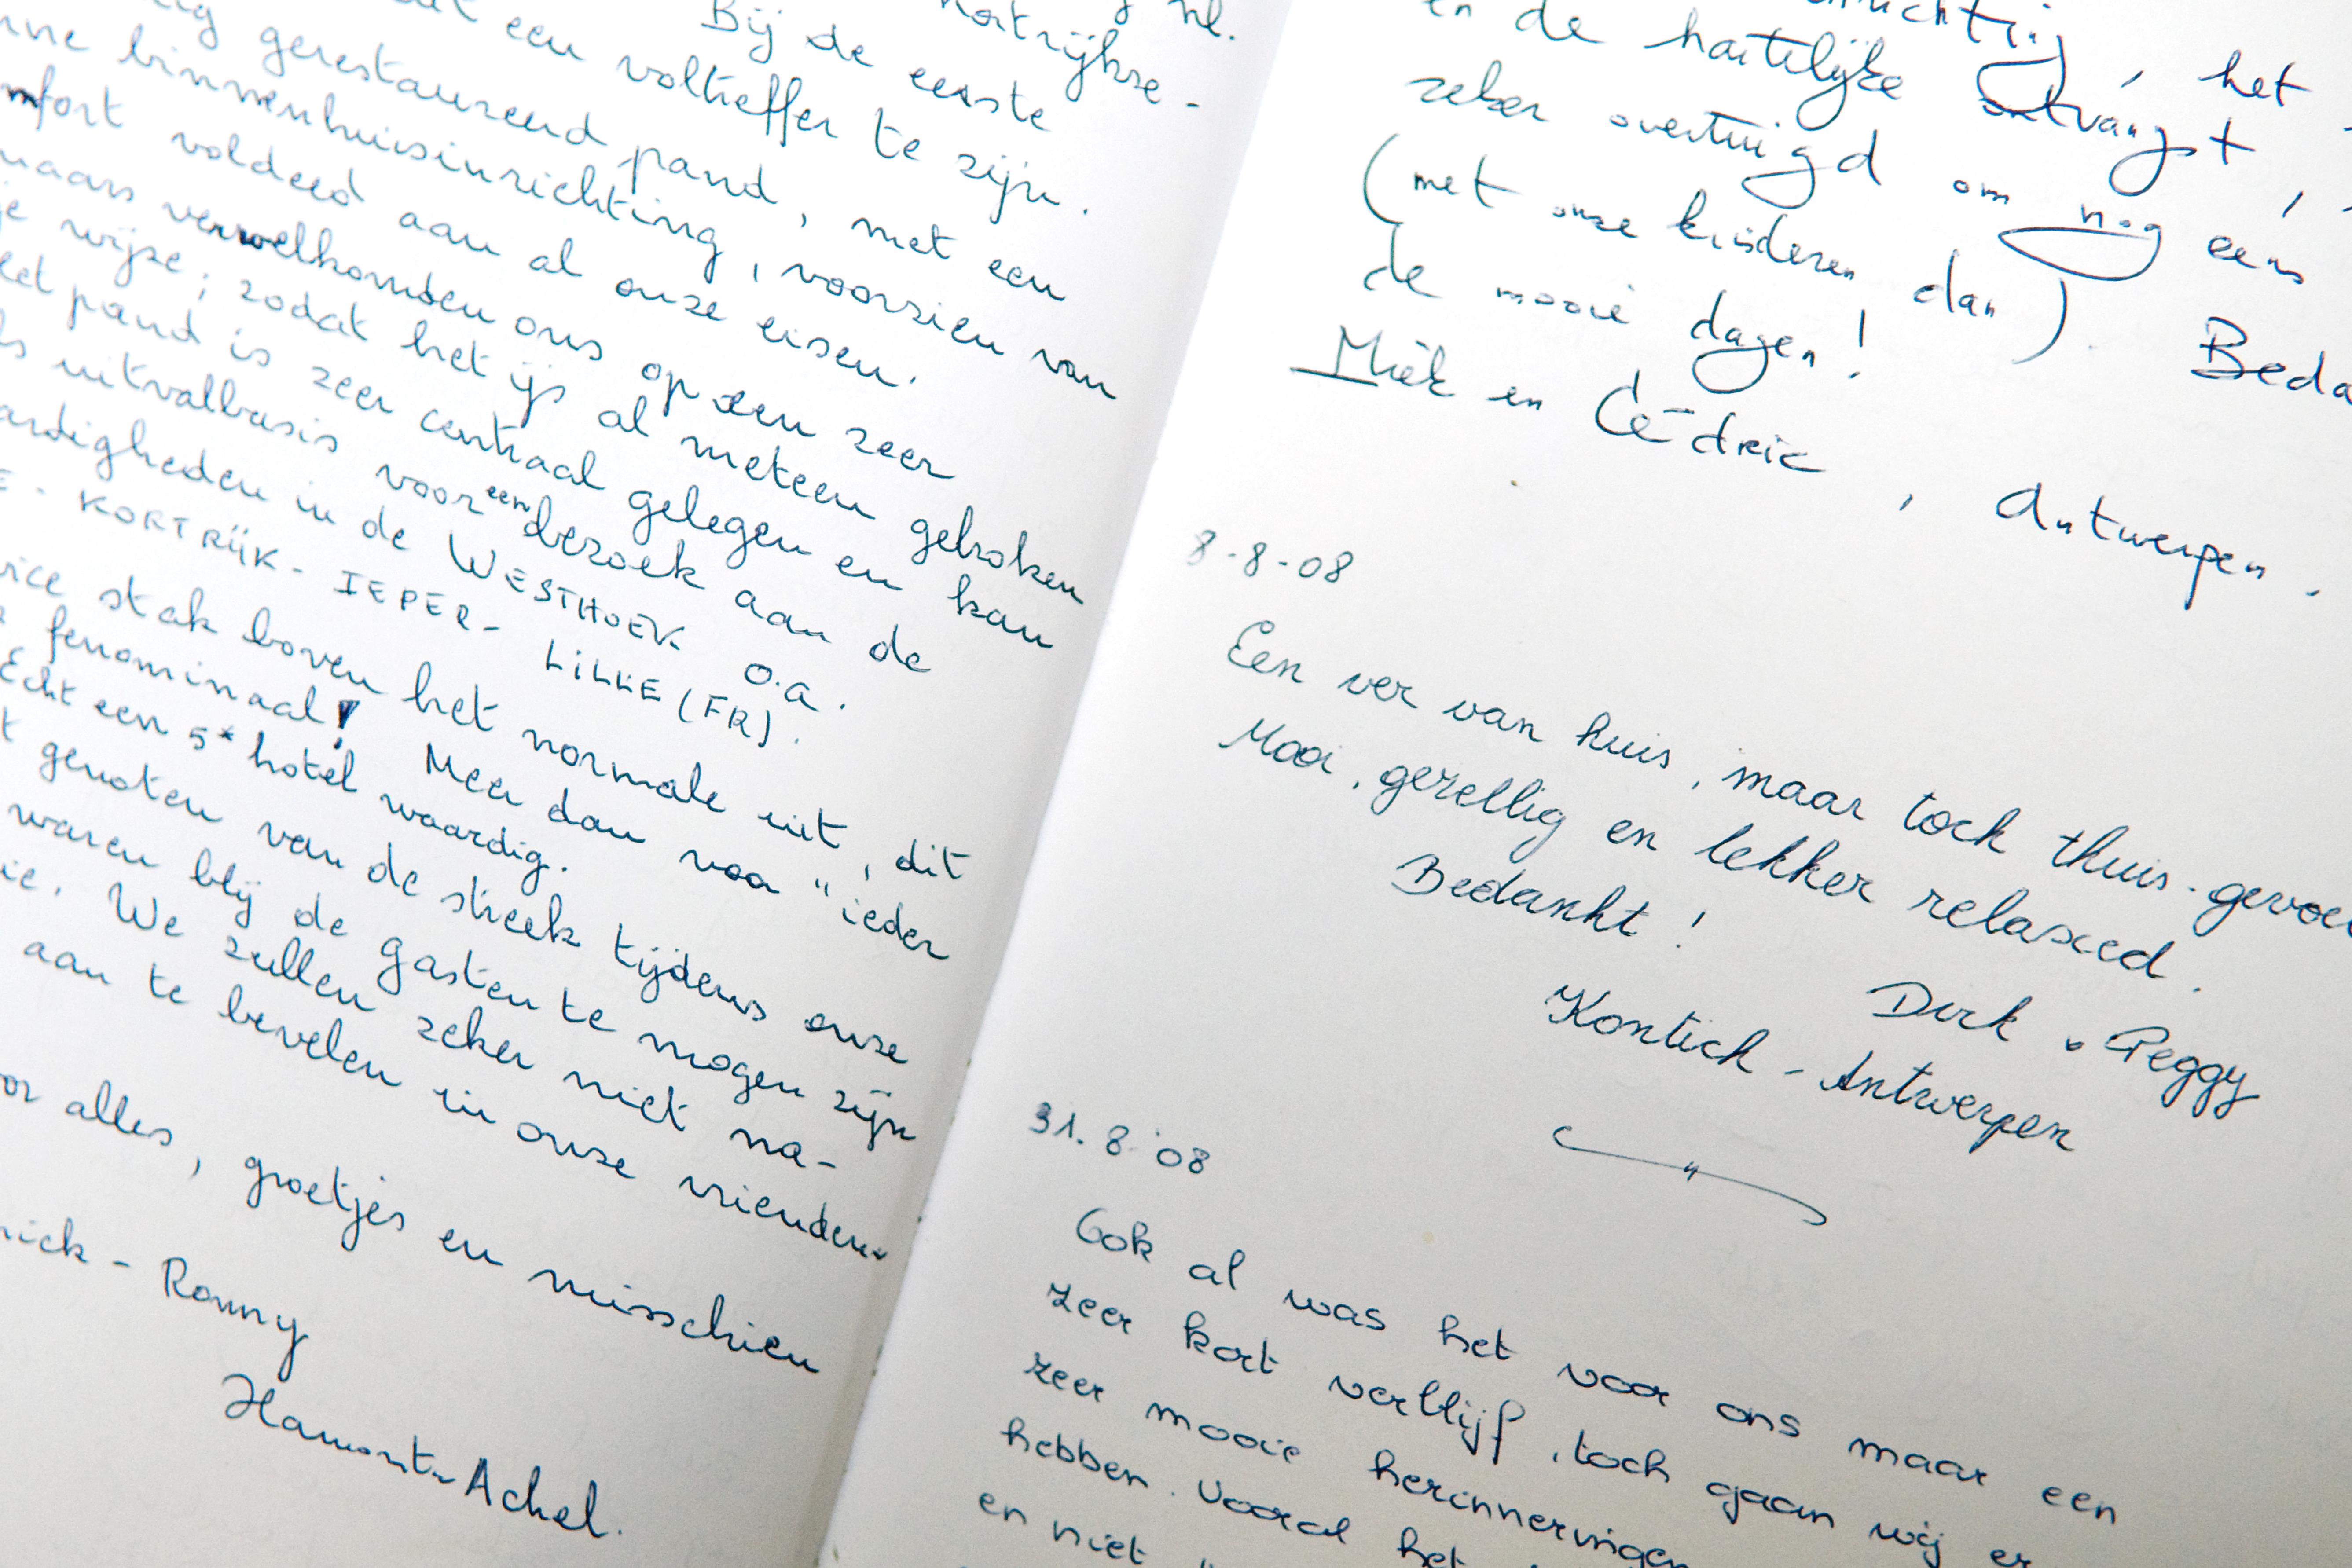 nl.
Kortrijkse-
Bij de eerste
een voltreffer te zijn.
gerestaureerd pand, met een
binnenhuisinrichting, voorzien van
voldeed aan al onze eisen.
verwelkomden ons op een zeer
wijze; zodat het ijs al meteen gebroken
pand is zeer centraal gelegen en kan
uitvalbasis voor een bezoek aan de
in de WESTHOEK o.a.
KORTRIJK - IEPER - LILLE (FR).
stak boven het normale uit, dit
fenominaal! Meer dan voor "ieder
Echt een 5* hotel waardig.
genoten van de streek tijdens onze
waren blij de gasten te mogen zijn
We zullen zeker niet na-
aan te bevelen in onze vrienden-
alles, groetjes en misschien
- Ronny
Hamont-Achel.
het
en de hartelijke ontvangst,
zeker overtuigd om nog eens
(met onze kinderen dan). Beda
de mooie dagen!
Miek en Cédric, Antwerpen.
8-8-08
Een ver van huis, maar toch thuis-gevoe
Mooi, gezellig en lekker relaxed.
Bedankt!
Dirk & Peggy
Kontich - Antwerpen
31.8.'08
Ook al was het voor ons maar een
zeer kort verblijf, toch gaan wij er
zeer mooie herinneringen
hebben. Vooral het
en niet